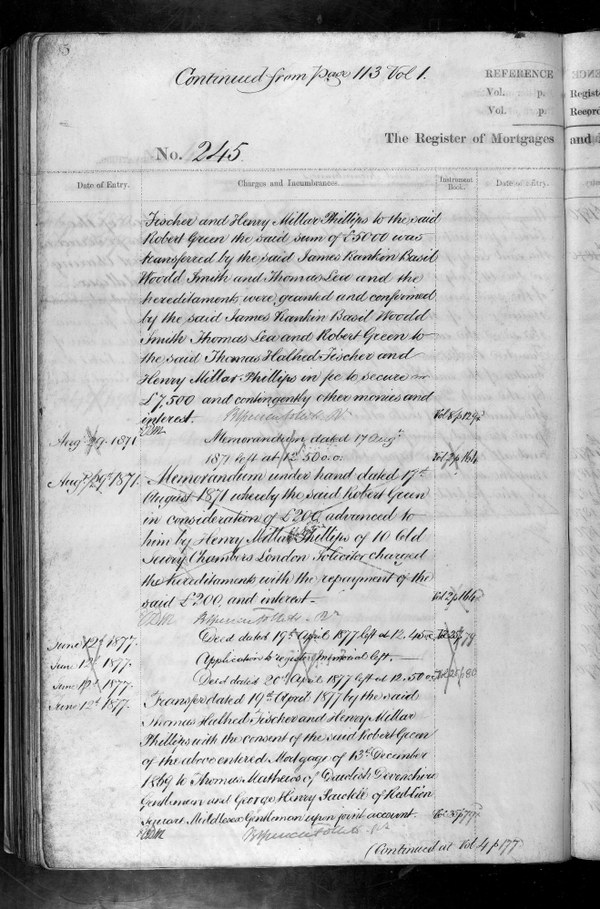 Continued from page 113 Vol 1.
REFERENCE
Vol. p.
Vol. p.
The Register of Mortgages and
No. 245.
Date of Entry.
Charges and Incumbrances.
Instrument Book.
Date of Entry.
Fischer and Henry Millar Phillips to the said
Robert Green the said sum of £5000 was
transferred by the said James Rankin Basil
Woodd Smith and Thomas Lea and the
hereditaments were granted and confirmed
by the said James Rankin Basil Woodd
Smith Thomas Lea and Robert Green to
the said Thomas Halhed Fischer and
Henry Millar Phillips in fee to secure
£7,500 and contingently other monies and
interest.
Augt 29. 1871
Memorandum dated 17 Augt
1871 left at 12.50 o.c.
Vol 2 p 164
Augt 29th 1871.
Memorandum under hand dated 17th
August 1871 whereby the said Robert Green
in consideration of £200 advanced to
him by Henry Millar Phillips of 10 Old
Jewry Chambers London Solicitor charged
the hereditaments with the repayment of the
said £200 and interest
Vol 2 p 164
June 12th 1877.
Deed dated 19th April 1877 left at 12.45 o.c.
June 12th 1877.
Application to register memorial left.
June 12th 1877.
Deed dated 20th April 1877 left at 12.50 o.c.
June 12th 1877.
Transfer dated 19th April 1877 by the said
Thomas Halhed Fischer and Henry Millar
Phillips with the consent of the said Robert Green
of the above entered Mortgage of 13th December
1869 to Thomas Mathews of Dawlish Devonshire
Gentleman and George Henry of Red Lion
Square Middlesex Gentleman upon joint account.
(Continued at Vol 4 p 177